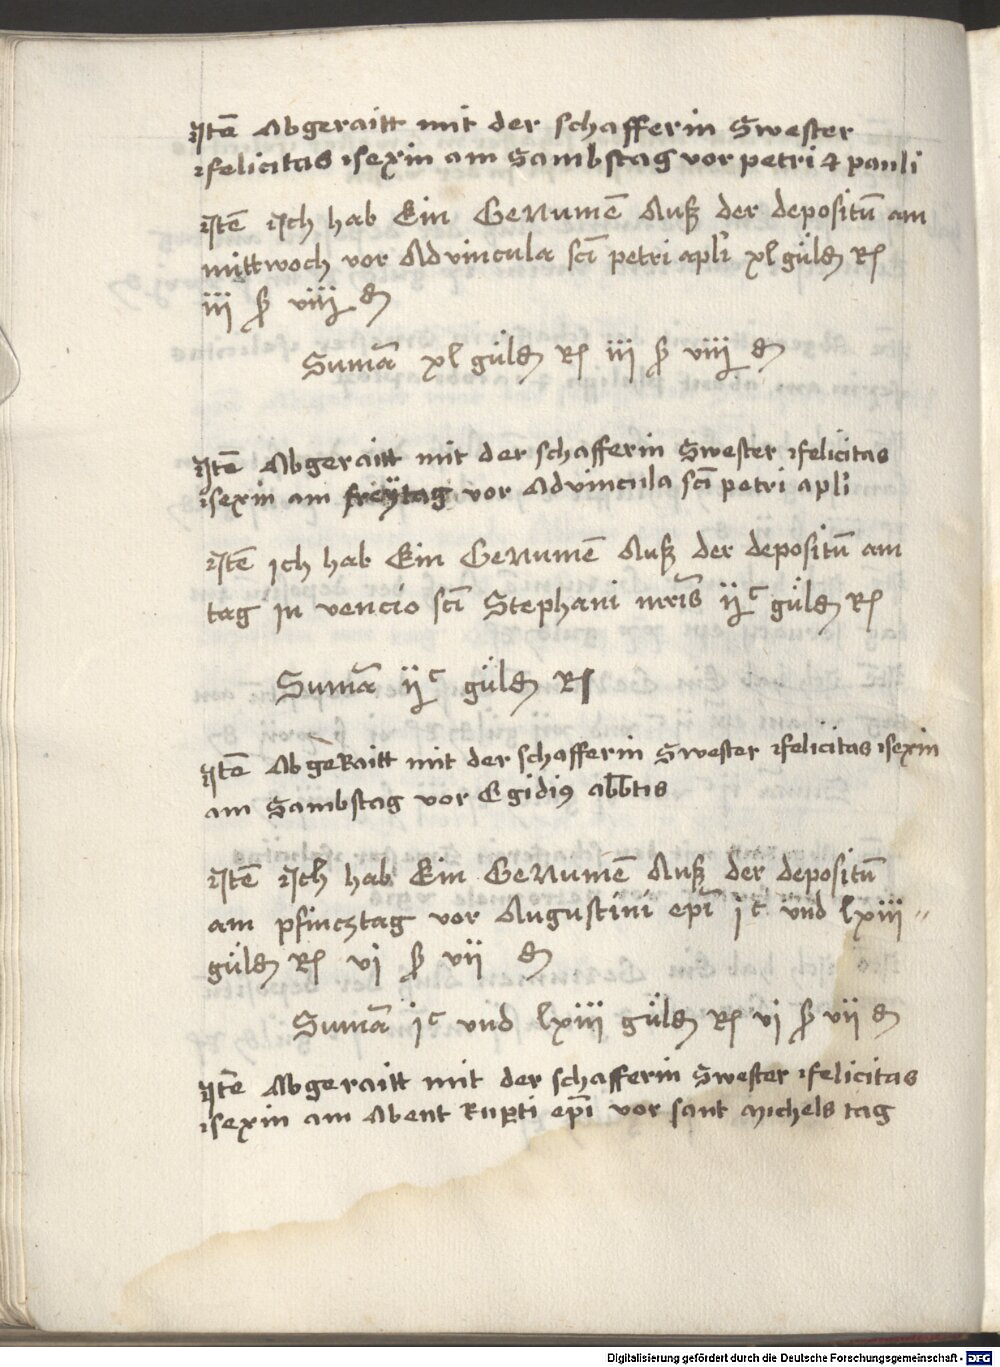 Jtē Abgeraitt mit der schafferin Swester
felicitas sexin am Sambstag vor petri & pauli
Jtē Jch hab Ein GeNumē Auß der depositū am
mittwoch vor Advincula scī petri apl'i xl gülđ Rʃ
iii ß viiij đ
Sumā xl gülđ Rʃ iii ß viiij đ
Jtē Abgeraitt mit der schafferin Swester felicitas
sexin am freÿtag vor Advincula scī petri apl'i
Jtē jch hab Ein GeNumē Auß der depositū am
tag jn vencio scī Stephani mr̄is ijᶜ gülđ Rʃ
Sumā ijᶜ gülđ Rʃ
Jtē AbgeRaitt mit der schafferin Swester felicitas sexin
am Sambstag vor Egidiꝰ abb̄tis
Jtē Jch hab Ein GeNumē Auß der depositū
am pfincztag vor Augustini ep̄i jᶜ und lxiii
gülđ Rʃ vj ß vii đ
Sumā jᶜ vnd lxiii gülđ Rʃ vj ß vii đ
Jtē Abgeraitt mit der schafferin Swester felicitas
sexin am Abent Ruꝑti ep̄i vor sant michels tag
Digitalisierung gefördert durch die Deutsche Forschungsgemeinschaft - DFG